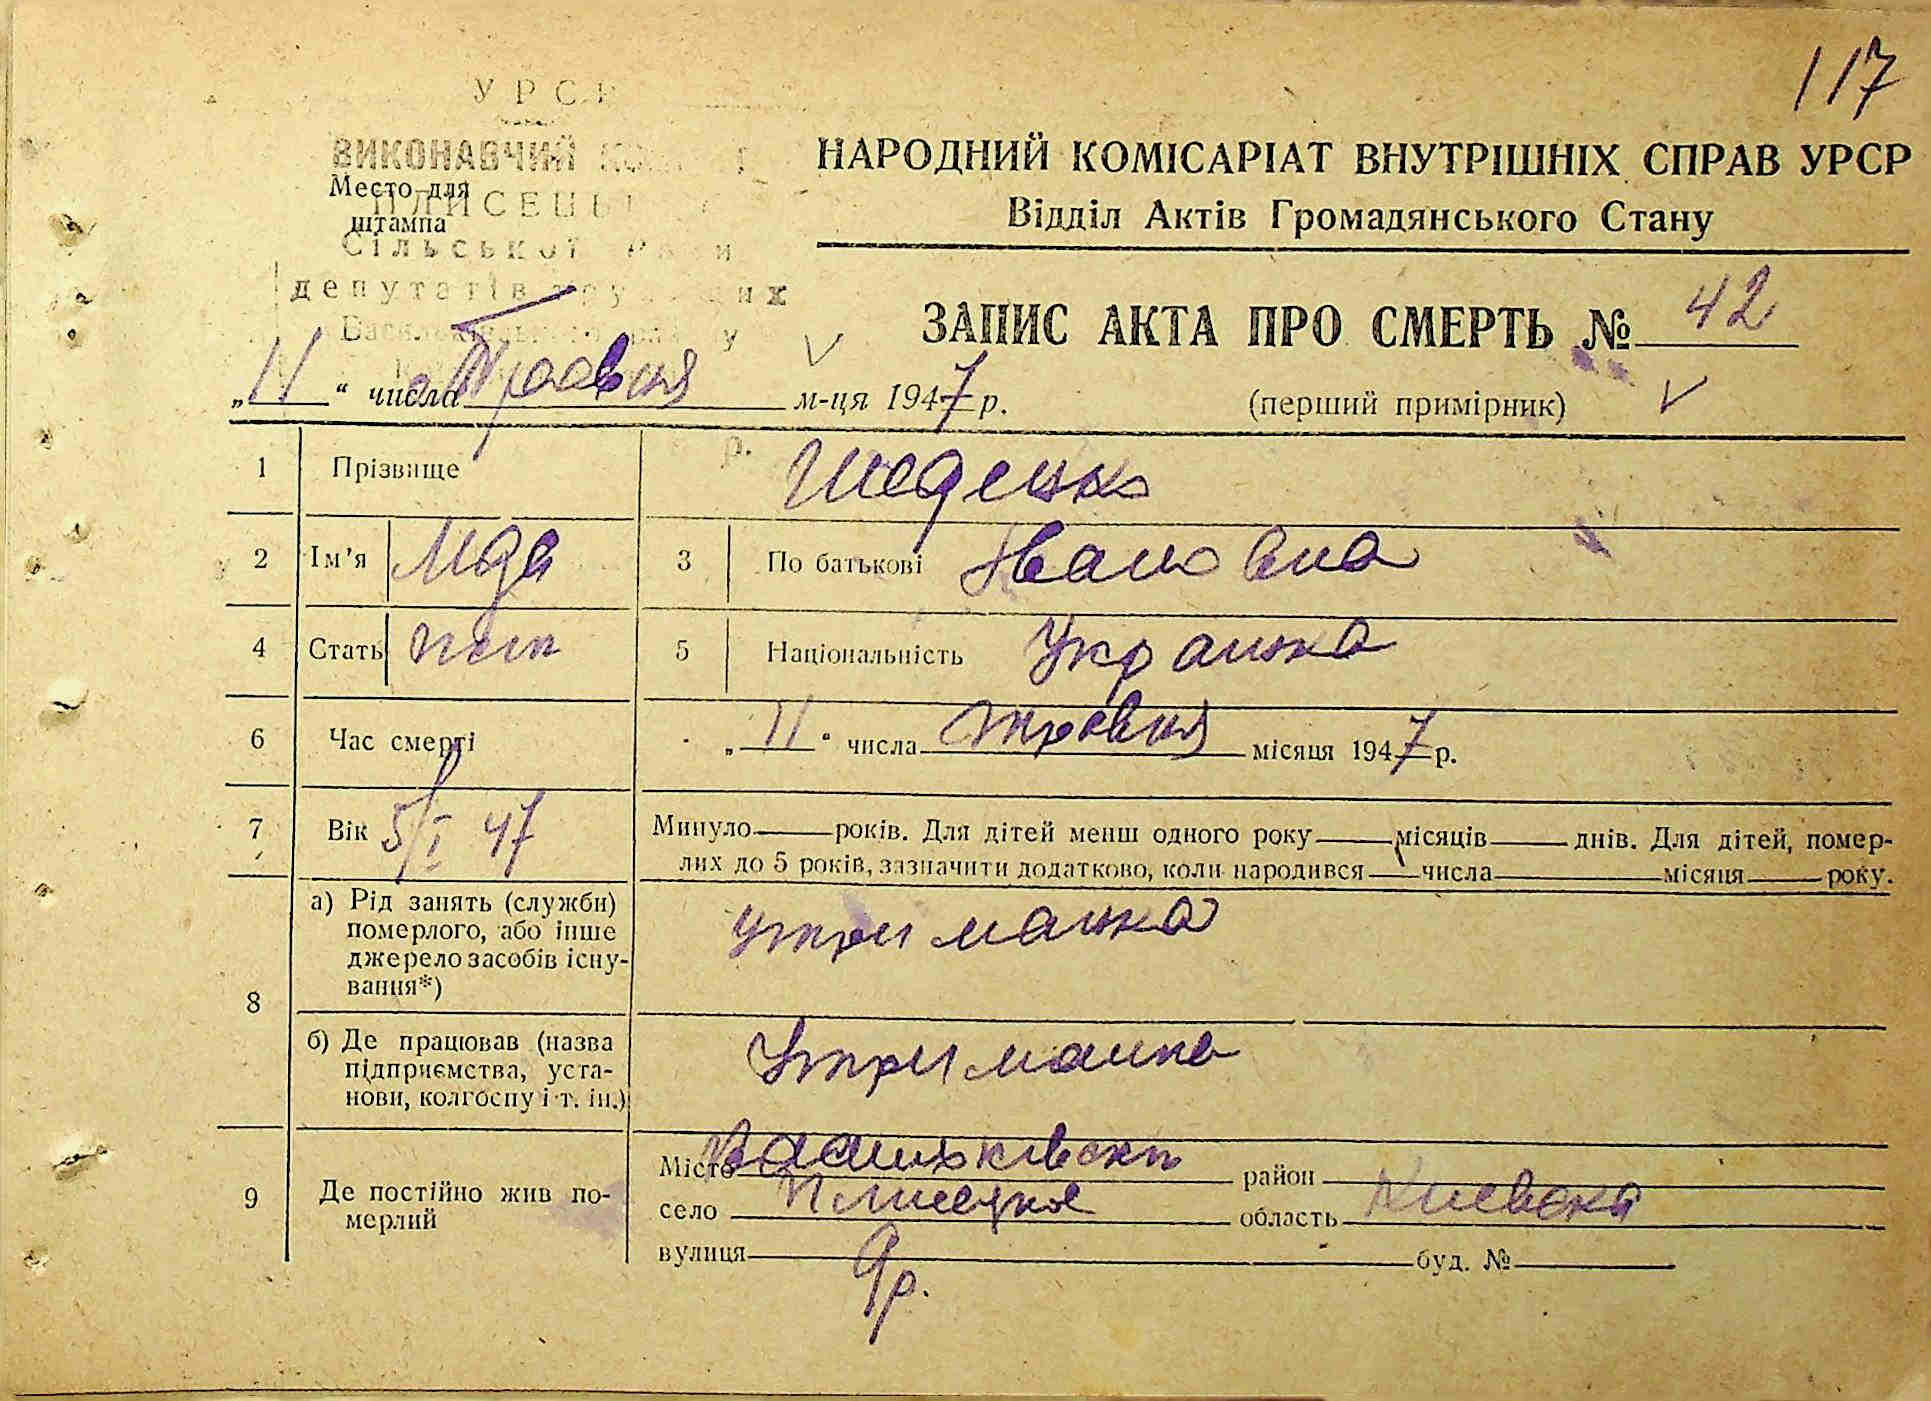 117
УРСР
ВИКОНАВЧИЙ
Место для
штампа
ПЛИСЕЦЬ
Сільської
депутатів
НАРОДНИЙ КОМІСАРІАТ ВНУТРІШНІХ СПРАВ УРСР
Відділ Актів Громадянського Стану
ЗАПИС АКТА ПРО СМЕРТЬ № 42
„11“ числа Травня м-ця 1947 р. (перший примірник)
1 Прізвище
2 Ім'я 3 По батькові Івановна
4 Стать жін 5 Національність Українка
6 Час смерті „11“ числа травня місяця 1947 р.
7 Вік 5/I 47 Минуло року. років. Для дітей менш одного року місяців днів. Для дітей, помер-
лих до 5 років, зазначити додатково, коли народився числа місяця року.
8 а) Рід занять (служби)
померлого, або інше
джерело засобів існу-
вання*)
утриманка
б) Де працював (назва
підприємства, уста-
нови, колгоспу і т. ін.)
Утриманка
9 Де постійно жив по-
мерлий
Місто Васильківськ район
село Плисецьке область Киевска
вулиця буд. №
9р.